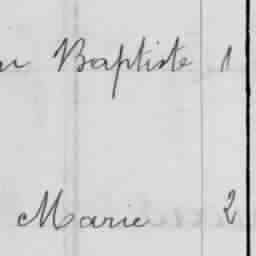 Baptiste 1
Marie 2